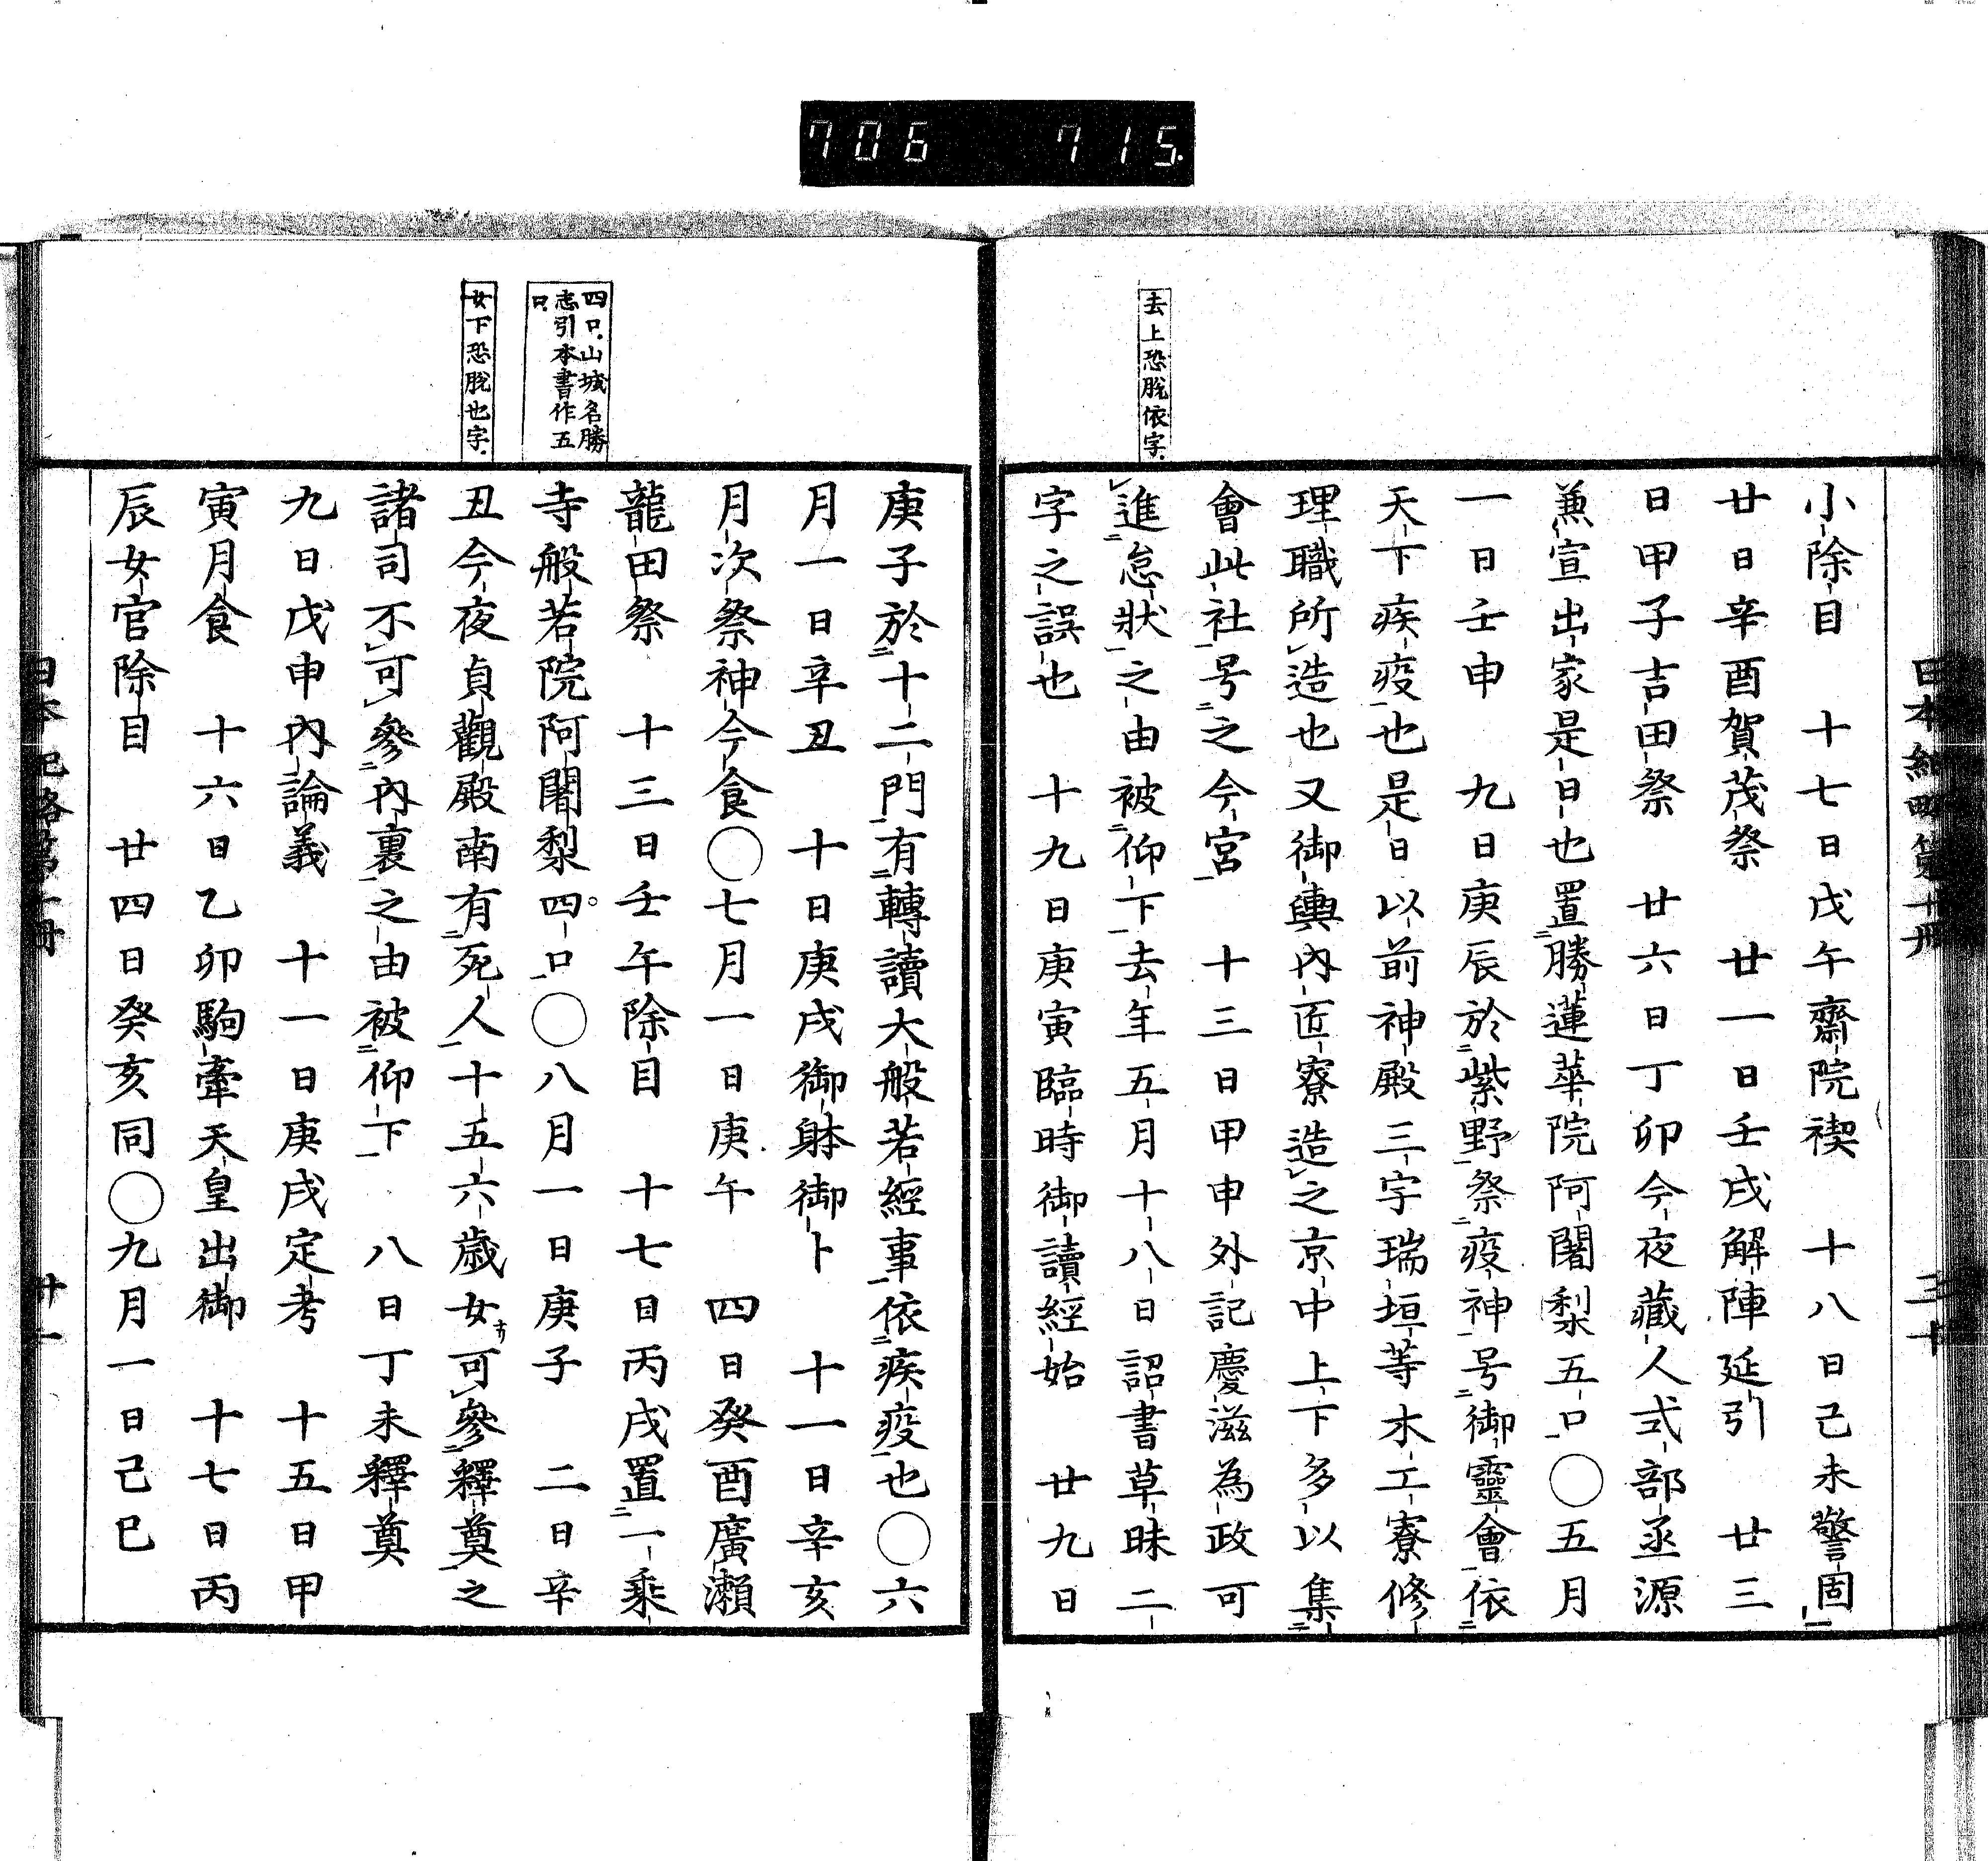 706 715.
去上恐脫依字.
小除目 十七日戊午齋院禊 十八日己未警固
廿日辛酉賀茂祭 廿一日壬戌解陣延引 廿三
日甲子吉田祭 廿六日丁卯今夜藏人式部丞源
兼宣出家是日也置勝蓮華院阿闍梨五口〇五月
一日壬申 九日庚辰於紫野祭疫神号御靈會依
天下疾疫也是日以前神殿三字瑞垣等木工寮修
理職所造也又御輿內匠寮造之京中上下多以集
會此社号之今宮 十三日甲申外記慶滋為政可
進怠狀之由被仰下去年五月十八日詔書草昧二
字之誤也 十九日庚寅臨時御讀經始 廿九日
四口.山城名勝
志引本書作五
口.
女下恐脫也字.
庚子於十二門有轉讀大般若經事依疾疫也〇六
月一日辛丑 十日庚戌御躰御卜 十一日辛亥
月次祭神今食〇七月一日庚午 四日癸酉廣瀨
龍田祭 十三日壬午除目 十七日丙戌置一乘
寺般若院阿闍梨四口〇八月一日庚子 二日辛
丑今夜貞觀殿南有死人十五六歲女可參釋奠之
諸司不可參內裏之由被仰下 八日丁未釋奠
九日戊申內論義 十一日庚戌定考 十五日甲
寅月食 十六日乙卯駒牽天皇出御 十七日丙
辰女官除目 廿四日癸亥同〇九月一日己巳